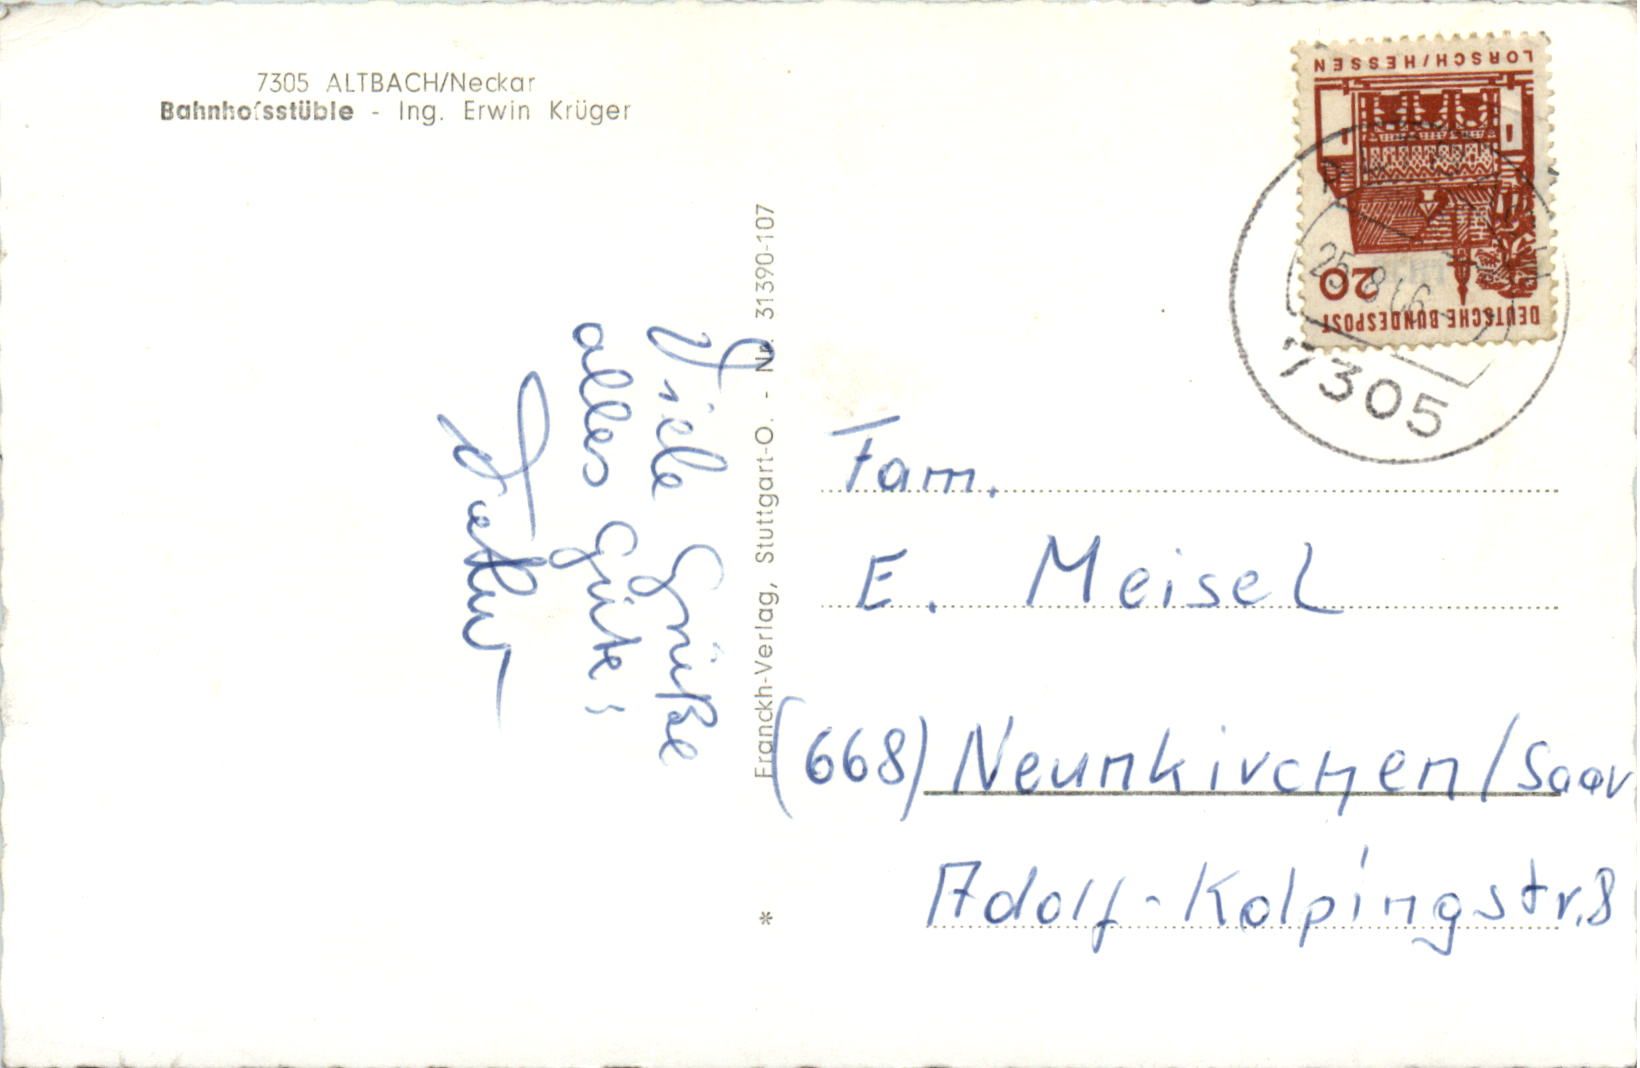 7305 ALTBACH/Neckar
Bahnhofsstüble - Ing. Erwin Krüger
LORSCH/HESSEN
20
DEUTSCHE BUNDESPOST
25.8.66
7305
Franckh-Verlag, Stuttgart-O. - Nr. 31390-107
Viele Grüße
alles Gute!
Fam.
E. Meisel
(668) Neunkirchen/Saar
Adolf-Kolpingstr. 8
*